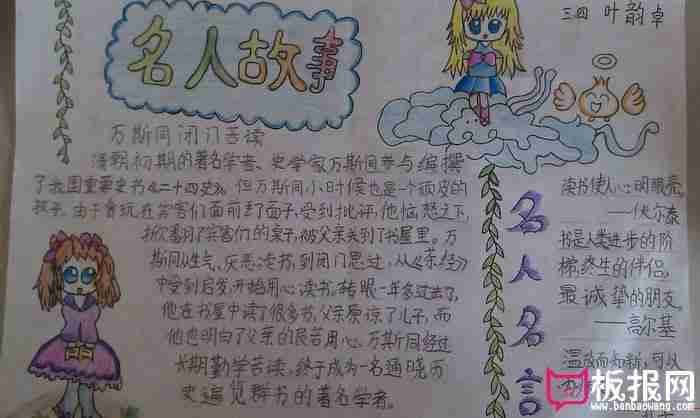 三四 叶韵卓
名人故事
万斯同闭门苦读
清朝初期的著名学者、史学家万斯同参与编撰
了我国重要史书《二十四史》。但万斯同小时候也是一个顽皮的
孩子。由于贪玩在宾客们面前丢了面子,受到批评,他恼怒之下,
掀翻了宾客们的桌子,被父亲关到了书屋里。万
斯同从生气、厌恶读书,到闭门思过,从《茶经》
中受到启发,开始用心读书。转眼一年多过去了,
他在书屋中读了很多书,父亲原谅了儿子,而
他也明白了父亲的良苦用心。万斯同经过
长期勤学苦读,终于成为一名通晓万
史遍览群书的著名学者。
名人名言
读书使人心明眼亮。
——伏尔泰
书是人类进步的阶
梯,终生的伴侣,
最诚挚的朋友。
——高尔基
温故而知新,可以
板报网
www.banbaowang.com